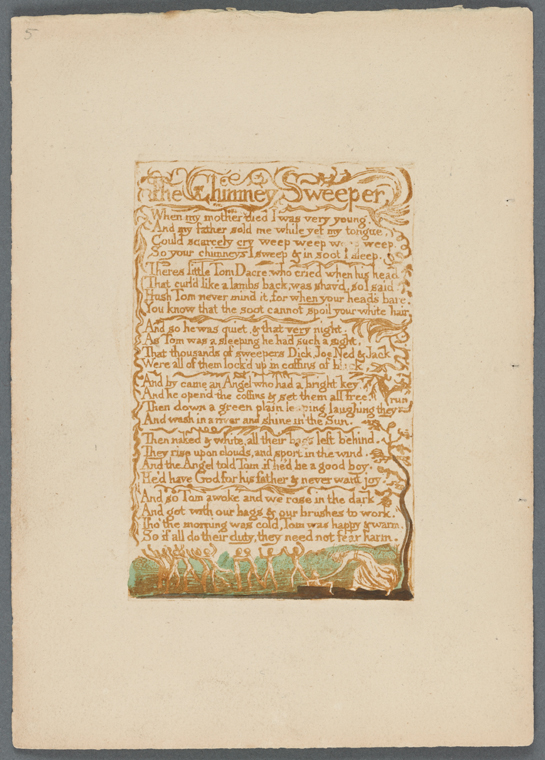 5
The Chimney Sweeper
When my mother died I was very young,
And my father sold me while yet my tongue,
Could scarcely cry weep weep weep weep.
So your chimneys I sweep & in soot I sleep.
Theres little Tom Dacre, who cried when his head
That curl'd like a lambs back, was shav'd, so I said
Hush Tom never mind it, for when your head's bare
You know that the soot cannot spoil your white hair
And so he was quiet, & that very night.
As Tom was a sleeping he had such a sight,
That thousands of sweepers Dick, Joe Ned & Jack
Were all of them lock'd up in coffins of black
And by came an Angel who had a bright key
And he open'd the coffins & set them all free.
Then down a green plain leaping laughing they run
And wash in a river and shine in the Sun.
Then naked & white, all their bags left behind.
They rise upon clouds, and sport in the wind.
And the Angel told Tom, if he'd be a good boy,
He'd have God for his father & never want joy
And so Tom awoke and we rose in the dark
And got with our bags & our brushes to work.
Tho' the morning was cold, Tom was happy & warm.
So if all do their duty, they need not fear harm.